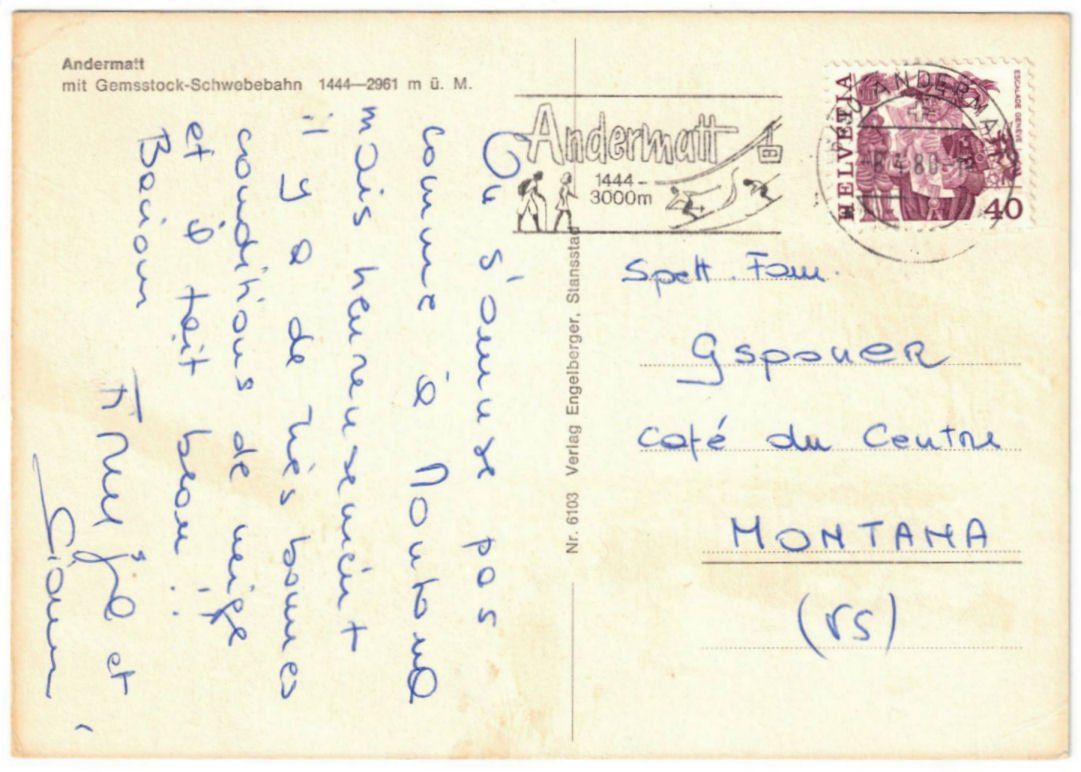 Andermatt
mit Gemsstock-Schwebebahn 1444—2961 m ü. M.
On s'amuse pas
comme à Montana
mais heureusement
il y a de très bonnes
conditions de neige
et il fait beau!!
et
Nr. 6103 Verlag Engelberger, Stansstad
Andermatt
1444-
3000m
ANDERMATT
80
HELVETIA
ESCALADE GENÈVE
40
Spett. Fam.
Gsponer
Café du Centre
MONTANA
(VS)